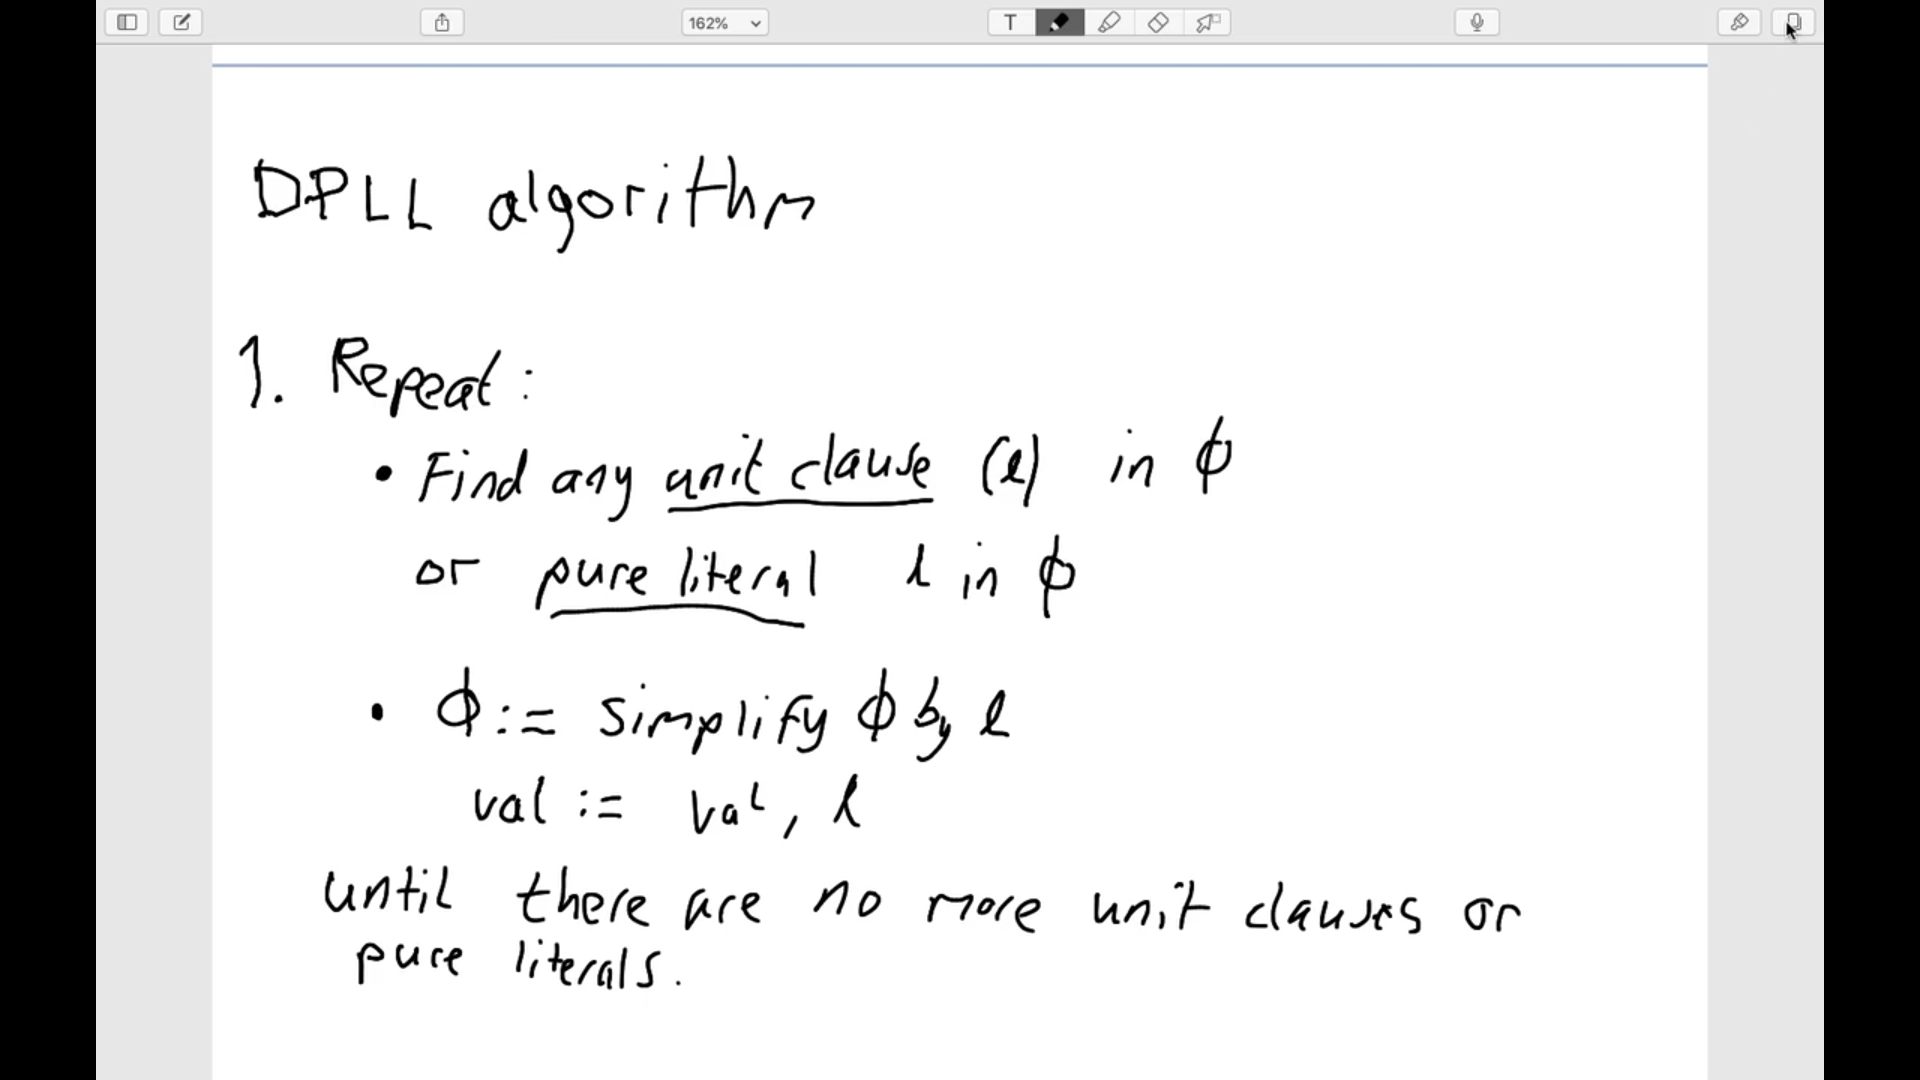 162%
T
DPLL algorithm
1. Repeat:
• Find any unit clause (l) in ϕ
or pure literal l in ϕ
• ϕ := simplify ϕ by l
val := val, l
until there are no more unit clauses or
pure literals.